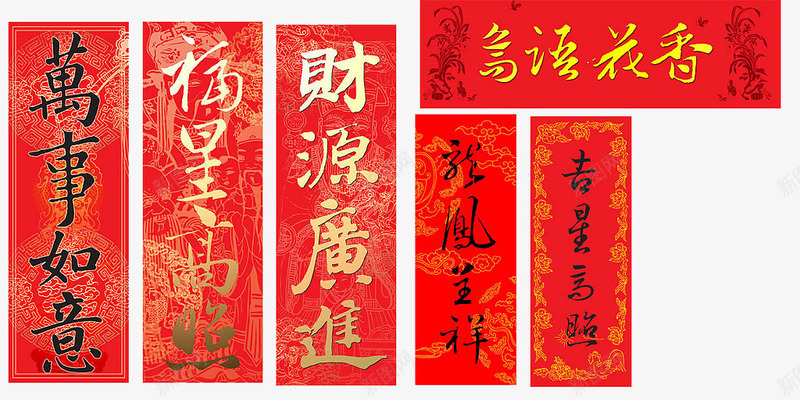 萬事如意
福星高照
財源廣進
鸟语花香
龍鳳呈祥
吉星高照